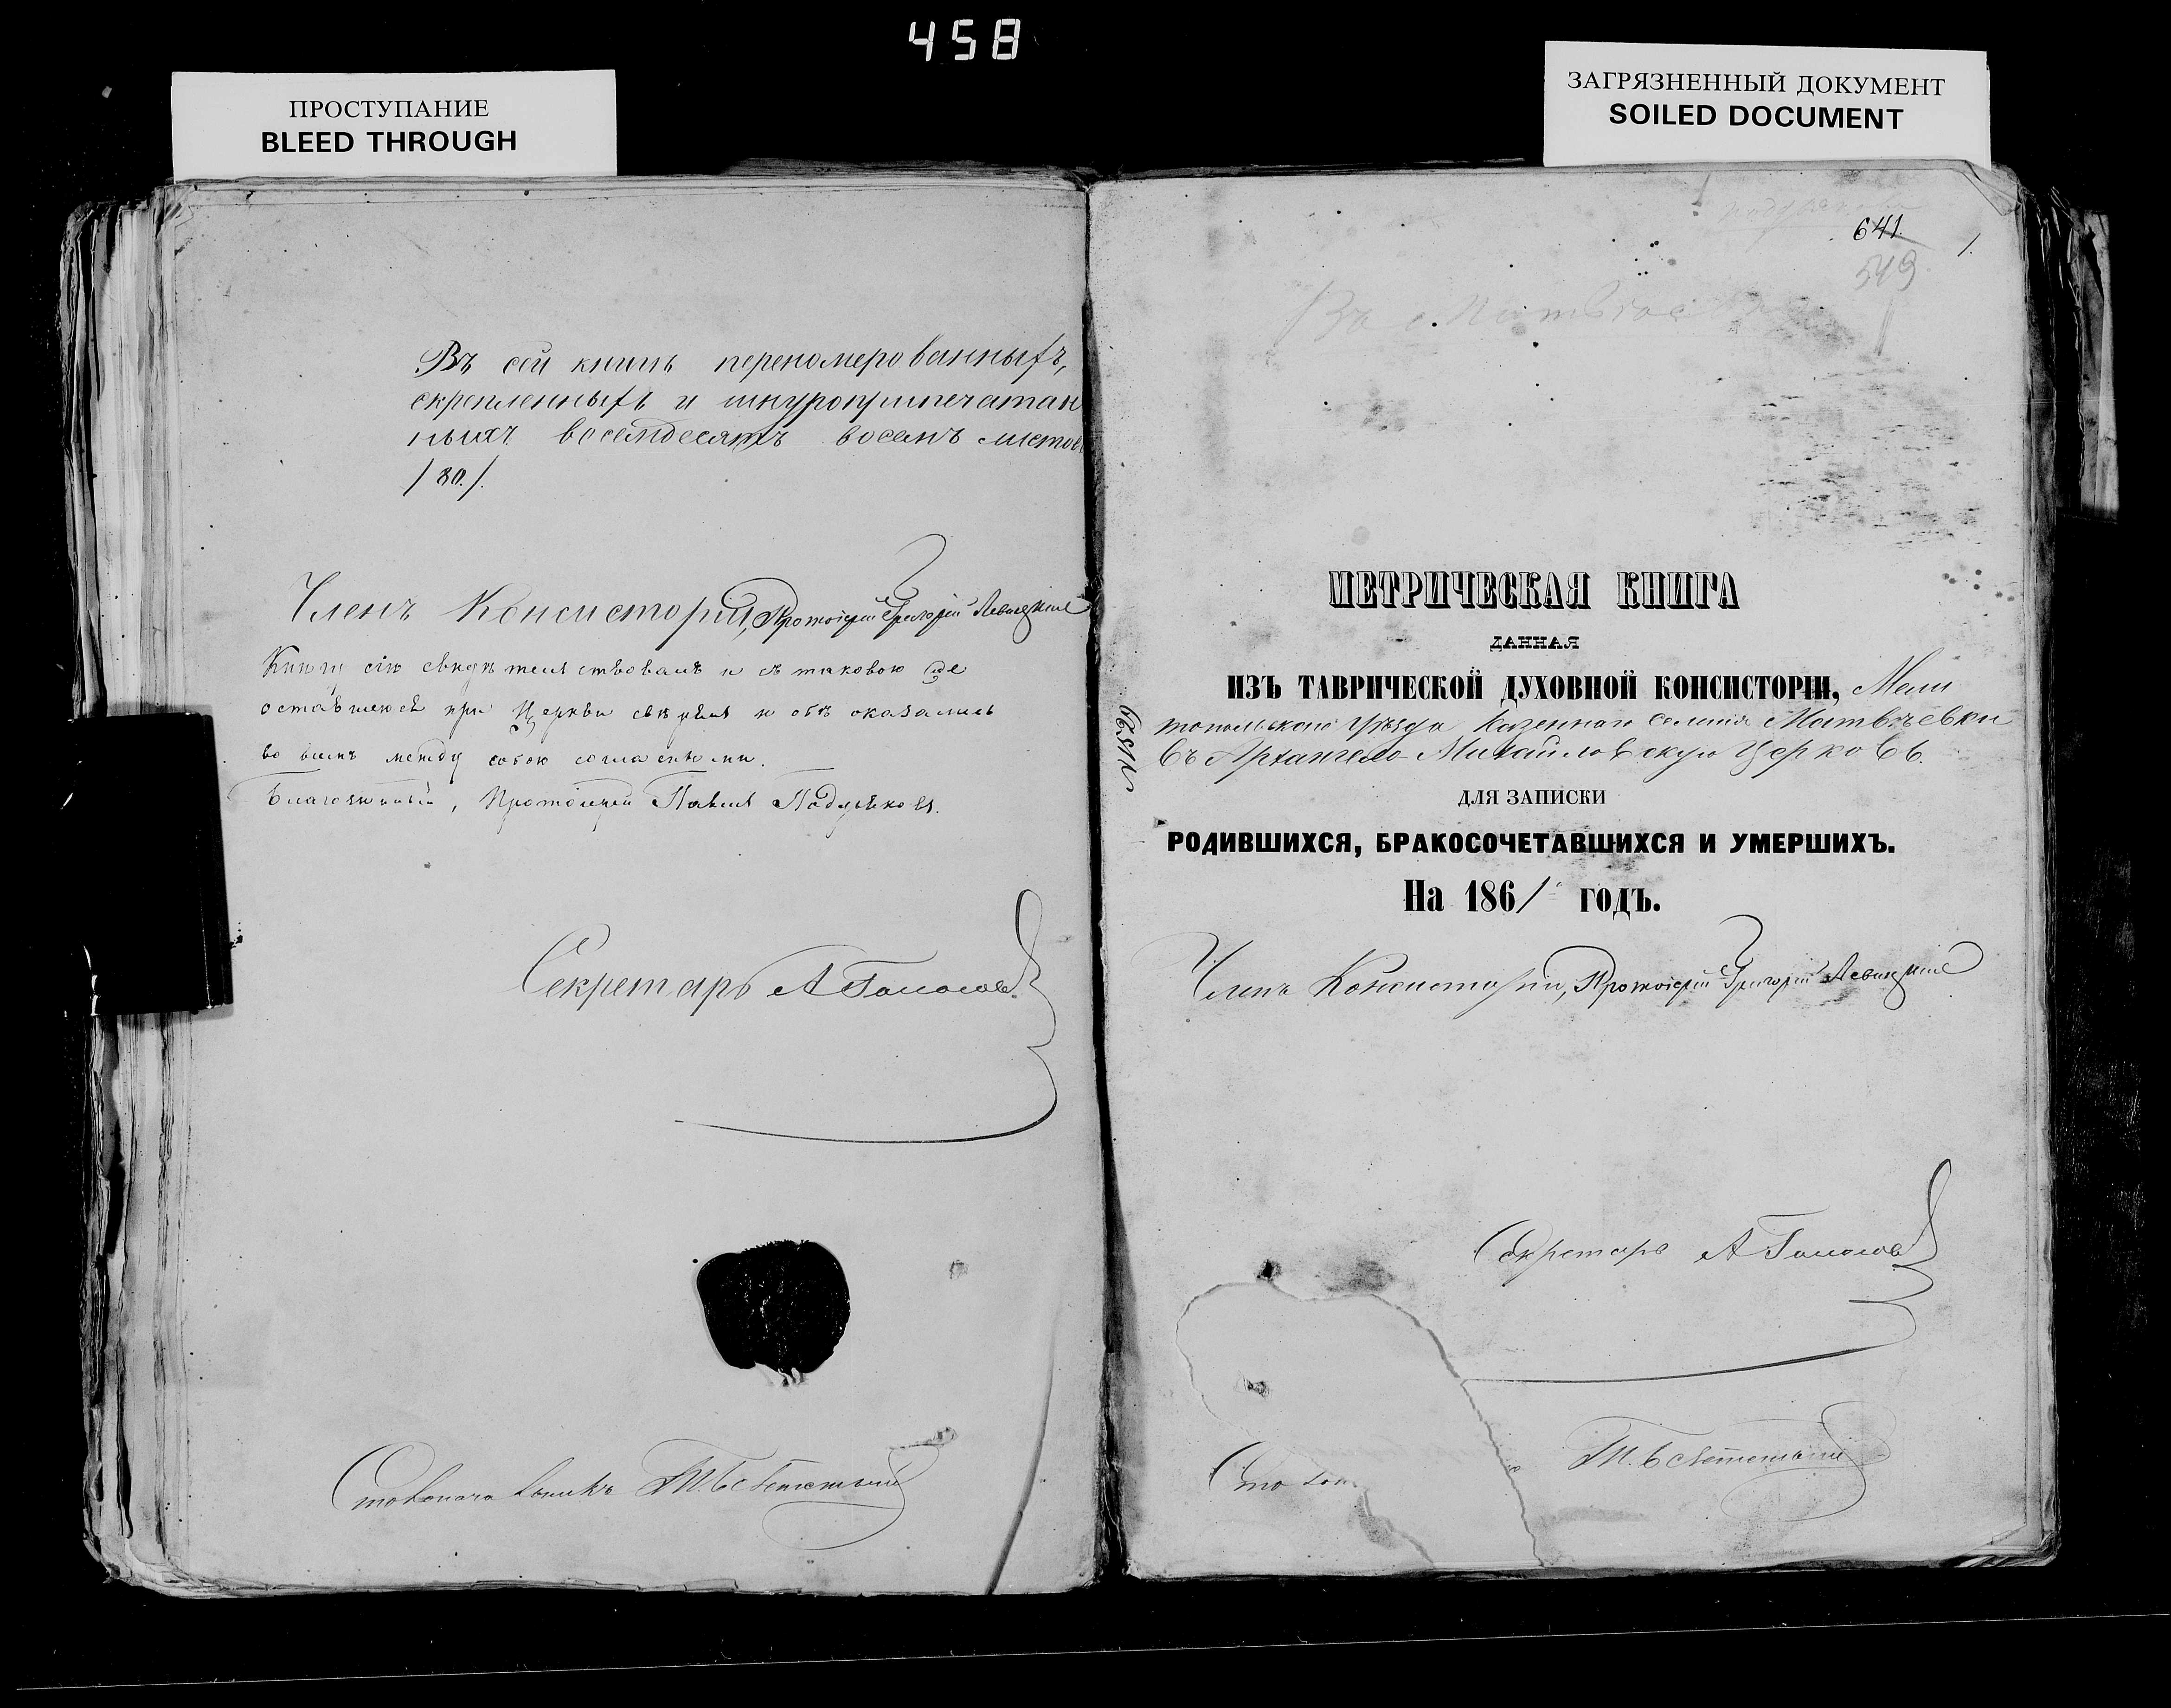 458
ПРОСТУПАНИЕ
BLEED THROUGH
ЗАГРЯЗНЕННЫЙ ДОКУМЕНТ
SOILED DOCUMENT
Въ сей книгѣ переномерованныхъ,
скрепленныхъ и шнуроприпечатан
ныхъ восемдесятъ восемь листовъ
/ 80. /.
Членъ Консисторіи, Протоіерей Григорій Левицкій
Книгу сію свидѣтельствовалъ и съ таковою же
оставшеюся при Церкви свѣрялъ и обѣ оказались
во всемъ между собою согласными.
Благочинный, Протоіерей Павелъ
Секретарь А
Столоначальникъ
641.
1.
549
МЕТРИЧЕСКАЯ КНИГА
ДАННАЯ
ИЗЪ ТАВРИЧЕСКОЙ ДУХОВНОЙ КОНСИСТОРІИ, Мели
топольскаго Уѣзда казеннаго селенія Матвѣевки
въ Архангело-Михайловскую Церковь.
ДЛЯ ЗАПИСКИ
РОДИВШИХСЯ, БРАКОСОЧЕТАВШИХСЯ И УМЕРШИХЪ.
На 1861 ГОДЪ.
Членъ Консисторіи, Протоіерей Григорій Левицкій
Секретарь А